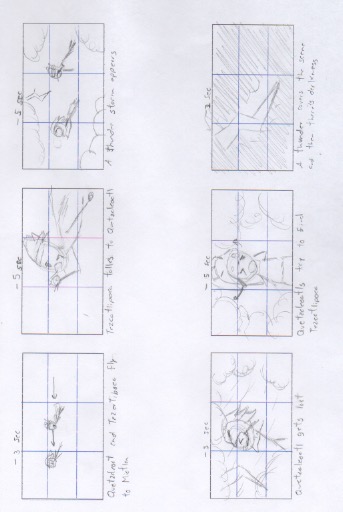 ~3 sec
Quetzalcoatl and Tezcatlipoca Fly
to Mictlan
~5 sec
Tezcatlipoca talks to Quetzalcoatl
~5 sec
A thunder storm appears
~3 sec
Quetzalcoatl gets hit
~5 sec
Quetzalcoatls try to find
Tezcatlipoca
sec
A thunder covers the scene
and then there's darkness